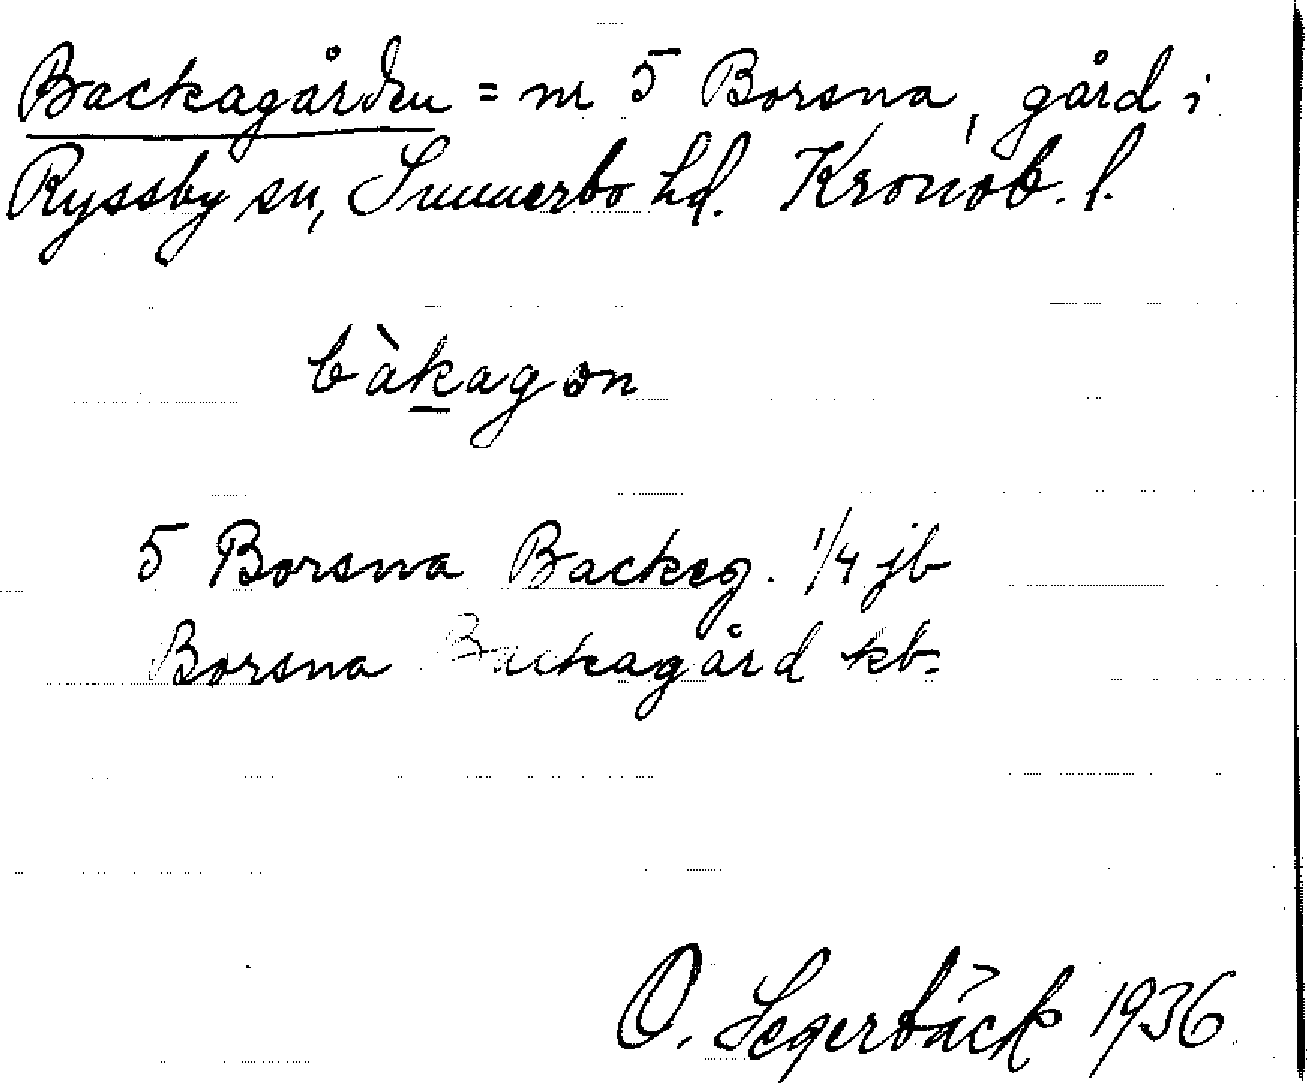 Backagården = nr 5 Borsna, gård i
Ryssby sn, Sunnerbo hd. Kronob. l.
bàk̲agɔn
5 Borsna Backeg. 1/4 jb
Borsna Backagård kb.
O. Segerbäck 1936